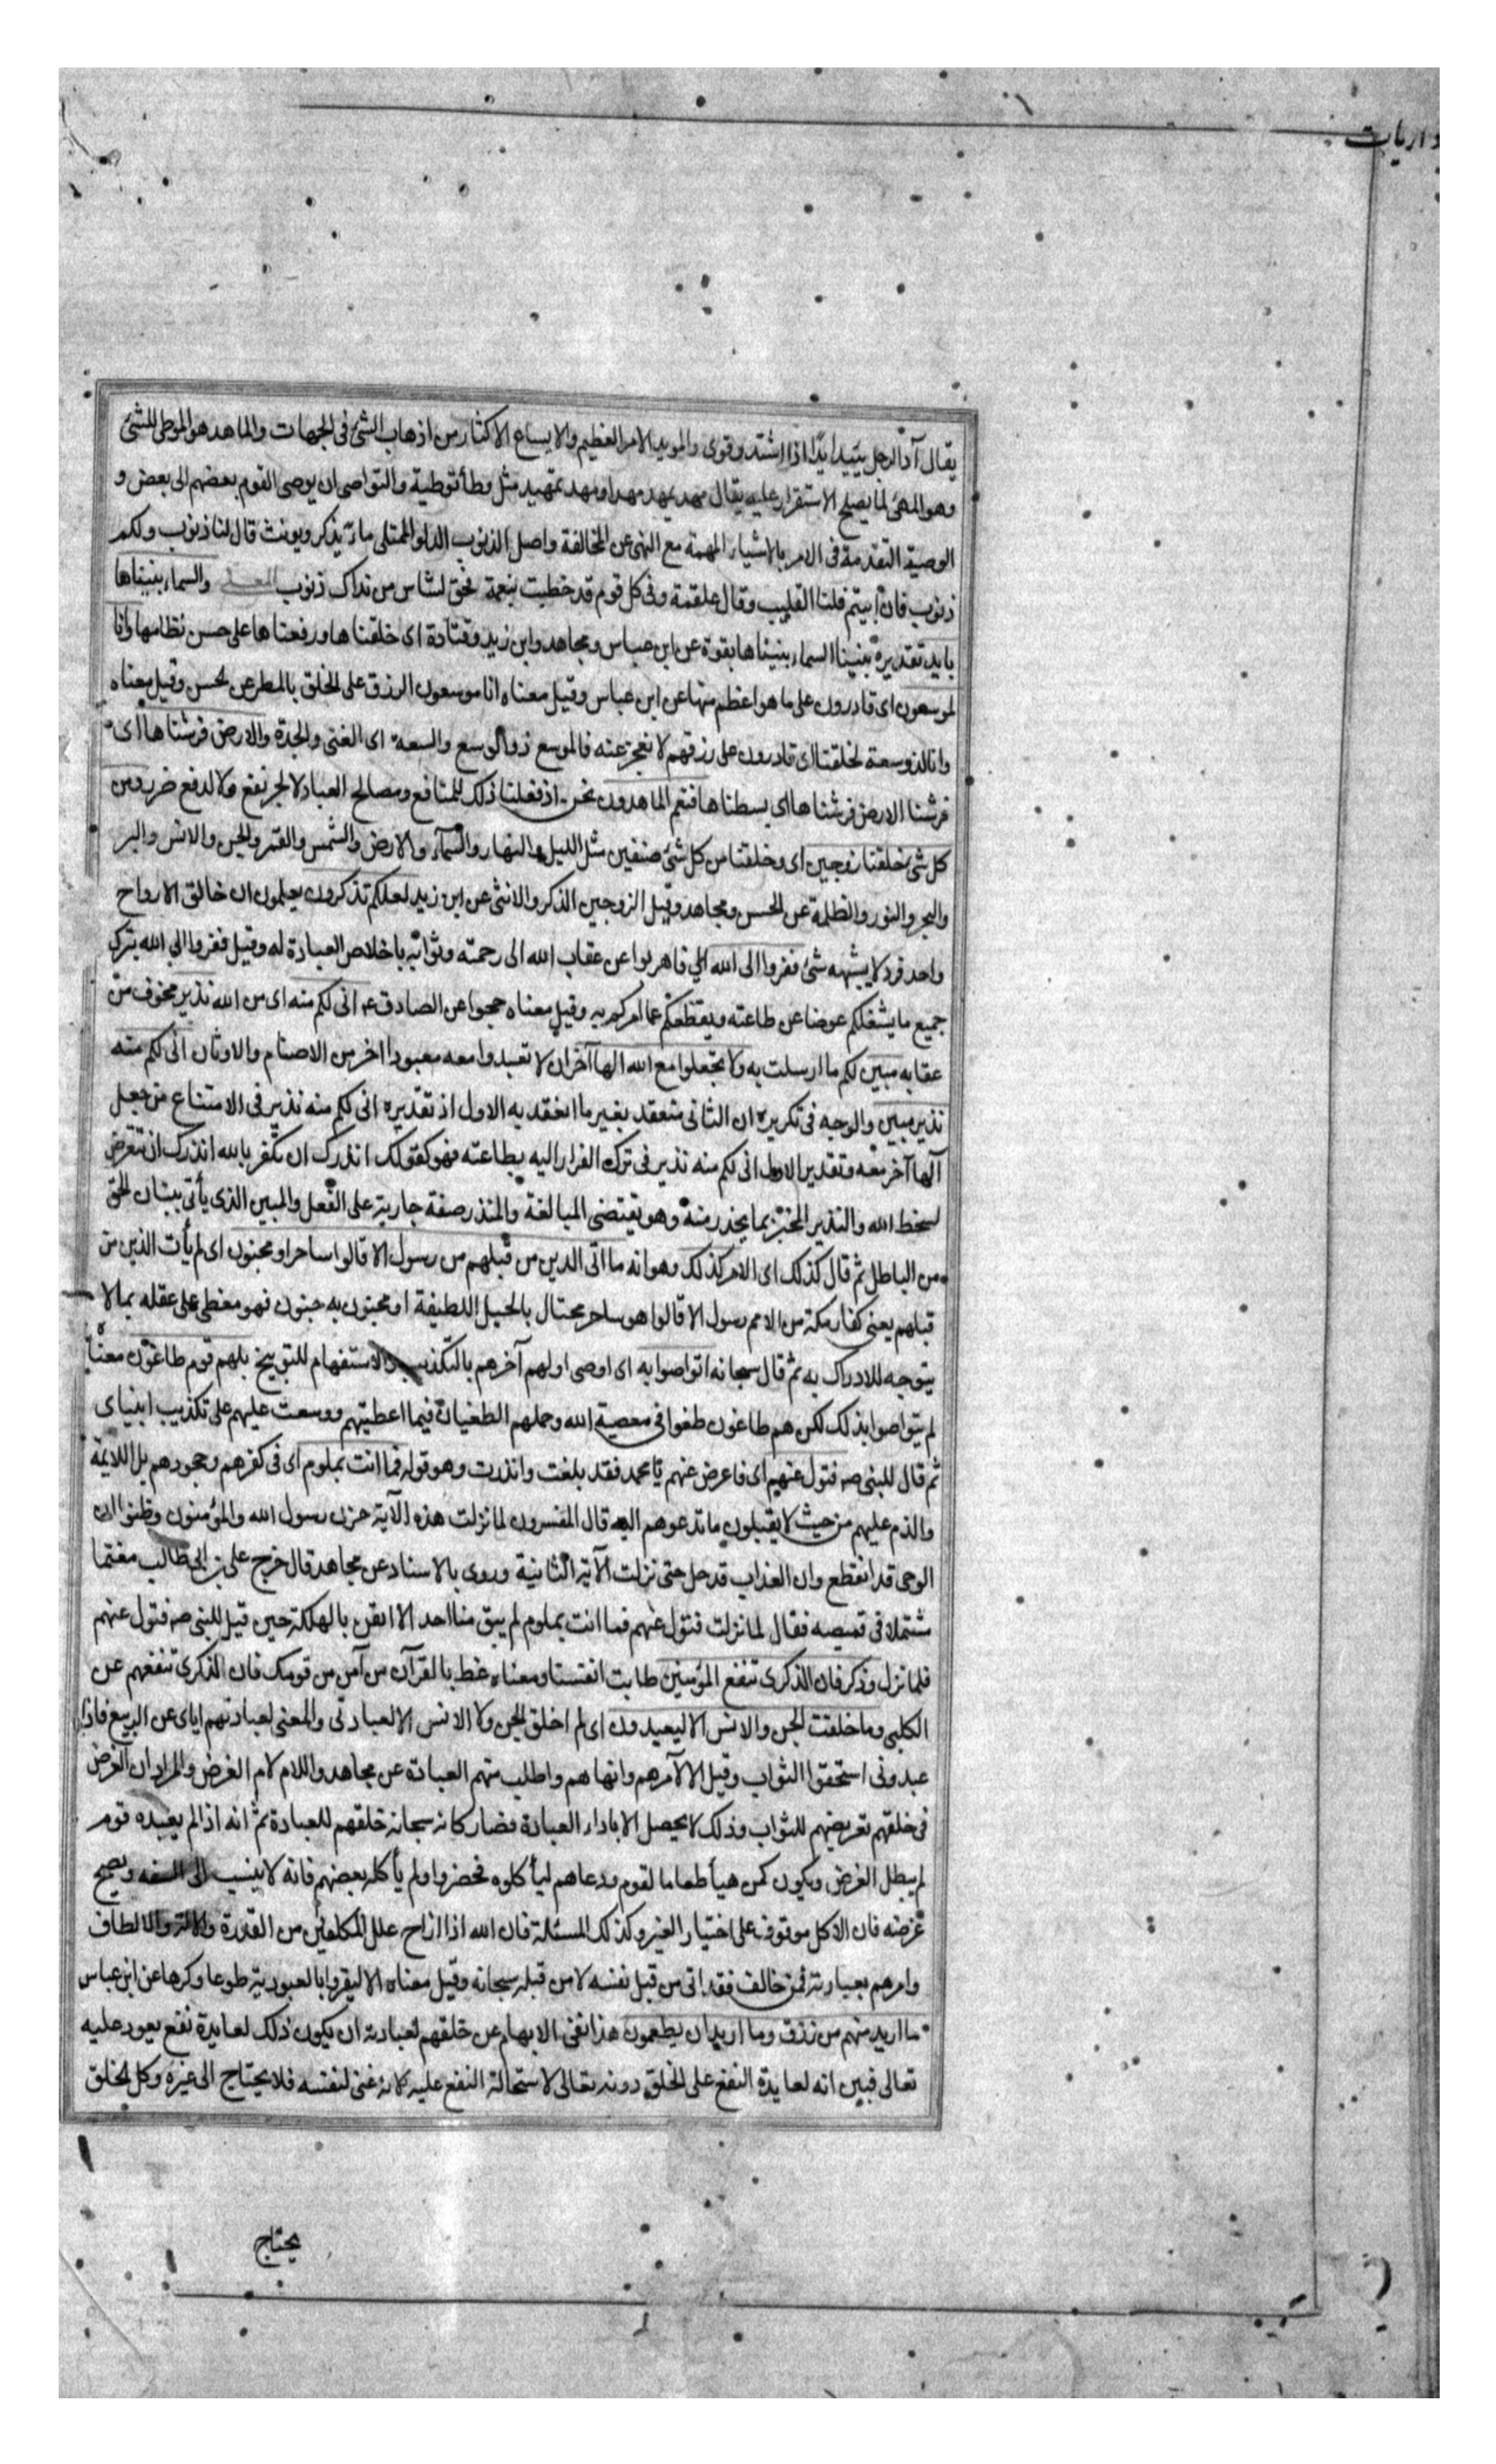 داريات
يقال آد الرجل يئيد ايدا اذا اشتد وقوى والمويد الامر العظيم والايساع الاكثار من اذهاب الشئ فى الجهات والماهد هو الموطى للشئ
وهو المهئ لما يصلح الاستقرار عليه يقال مهد يمهد مهدا ومهد تمهيد مثل وطأ توطية والتواصى ان يوصى القوم بعضهم الى بعض و
الوصية التقدمة فى الامر بالاشياء المهمة مع النهى عن المخالفة واصل الذنوب الدلو الممتلى ماء يذكر ويونث قال لنا ذنوب ولكم
ذنوب فان ابيتم فلنا القليب وقال علقمة وفى كل قوم قد خطبت بنعمة فحق لشاس من نداك ذنوب المعنى والسماء بنيناها
بايد تقديره بنينا السماء بنيناها بقوة عن ابن عباس ومجاهد وابن زيد وقتادة اى خلقناها ورفعناها على حسن نظامها وانا
لموسعون اى قادرون على ما هو اعظم منها عن ابن عباس وقيل معناه انا موسعون الرزق على الخلق بالمطر عن الحسن وقيل معناه
وانا لذو سعة لخلقنا اى قادرون على رزقهم لا نعجز عنه فالموسع ذو الوسع والسعة اى الغنى والجدة والارض فرشناها اى
فرشنا الارض فرشناها اى بسطناها فنعم الماهدون نحن اذ فعلنا ذلك للمنافع ومصالح العباد لا لجر نفع ولا لدفع ضر ومن
كل شئ خلقنا زوجين اى وخلقنا من كل شئ صنفين مثل الليل والنهار والسماء والارض والشمس والقمر والجن والانس والبر
والبحر والنور والظلمة عن الحسن ومجاهد وقيل الزوجين الذكر والانثى عن ابن زيد لعلكم تذكرون يعلمون ان خالق الازواج
واحد فرد لا يشبهه شئ ففروا الى الله اى فاهربوا عن عقاب الله الى رحمته وثوابه باخلاص العبادة له وقيل ففروا الى الله بترك
جميع ما يشغلكم عوضا عن طاعته ويقطعكم عما امركم به وقيل معناه حجوا عن الصادق ع انى لكم منه اى من الله نذير مخوف من
عقابه مبين لكم ما ارسلت به ولا تجعلوا مع الله الها آخر ان لا تعبدوا معه معبودا اخر من الاصنام والاوثان انى لكم منه
نذير مبين والوجه فى تكريره ان الثانى منعقد بغير ما انعقد به الاول اذ تقديره انى لكم منه نذير فى الامتناع من جعل
آلها آخر معه وتقدير الاول انى لكم منه نذير فى ترك الفرار اليه بطاعته فهو كقولك انذرك ان تكفر بالله انذرك ان تتعرض
لسخط الله والنذير المخبر بما يحذر منه وهو يقتضى المبالغة والمنذر صفة جارية على الفعل والمبين الذى يأتى ببيان الحق
من الباطل ثم قال كذلك اى الامر كذلك وهو انه ما اتى الذين من قبلهم من رسول الا قالوا ساحر او مجنون اى لم يأت الذين من
قبلهم يعنى كفار مكة من الامم رسول الا قالوا هو ساحر يحتال بالحيل اللطيفة او مجنون به جنون فهو مغطى على عقله بما لا
يتوجه للادراك به ثم قال سبحانه اتواصوا به اى اوصى اولهم آخرهم بالتكذيب والاستفهام للتوبيخ بل هم قوم طاغون معناه
لم يتواصوا بذلك لكن هم طاغون طغوا فى معصية الله وحملهم الطغيان فيما اعطيتهم ووسعت عليهم على تكذيب انبياى
ثم قال للنبى ص فتول عنهم اى فاعرض عنهم يا محمد فقد بلغت وانذرت وهو قوله فما انت بملوم اى فى كفرهم وجحودهم بل اللايمة
والذم عليهم من حيث لا يقبلون ما تدعوهم اليه قال المفسرون لما نزلت هذه الآية حزن رسول الله والمؤمنون وظنوا ان
الوحى قد انقطع وان العذاب قد حل حتى نزلت الآية الثانية وروى بالاسناد عن مجاهد قال خرج على بن ابى طالب مغتما
مشتملا فى قميصه فقال لما نزلت فتول عنهم فما انت بملوم لم يبق منا احد الا ايقن بالهلكة حين قيل للنبى ص فتول عنهم
فلما نزل وذكر فان الذكرى تنفع المؤمنين طابت انفسنا ومعناه عظ بالقرآن من آمن من قومك فان الذكرى تنفعهم عن
الكلبى وما خلقت الجن والانس الا ليعبدون اى لم اخلق الجن ولا الانس الا لعبادتى والمعنى لعبادتهم اياى عن الربيع فاذا
عبدونى استحقوا الثواب وقيل الا لآمرهم وانهاهم واطلب منهم العبادة عن مجاهد واللام لام الغرض والمراد ان الغرض
فى خلقهم تعريضهم للثواب وذلك لا يحصل الا باداء العبادة فصار كانه سبحانه خلقهم للعبادة ثم انه اذا لم يعبده قوم
لم يبطل الغرض ويكون كمن هيأ طعاما لقوم ودعاهم ليأكلوه فحضروا ولم يأكله بعضهم فانه لا ينسب الى السفه ويصح
غرضه فان الاكل موقوف على اختيار الغير وكذلك المسئلة فان الله اذا ازاح علل المكلفين من القدرة والالة والالطاف
وامرهم بعبادته فمن خالف فقد اتى من قبل نفسه لا من قبله سبحانه وقيل معناه الا ليقروا بالعبودية طوعا وكرها عن ابن عباس
ما اريد منهم من رزق وما اريد ان يطعمون هذا نفى الابهام عن خلقهم لعبادته ان يكون ذلك لعايدة نفع يعود عليه
تعالى فبين انه لعايدة النفع على الخلق دونه تعالى لاستحالة النفع عليه لانه غنى لنفسه فلا يحتاج الى غيره وكل الخلق
يحتاج